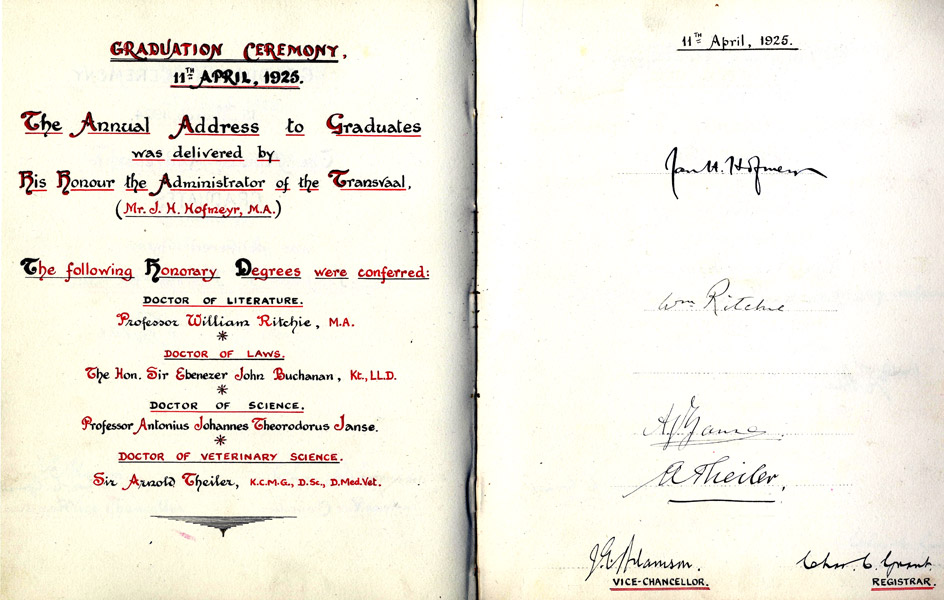 GRADUATION CEREMONY,
11TH APRIL, 1925.
The Annual Address to Graduates
was delivered by
His Honour the Administrator of the Transvaal,
(Mr. J. H. Hofmeyr, M.A.)
The following Honorary Degrees were conferred:
DOCTOR OF LITERATURE.
Professor William Ritchie, M.A.
*
DOCTOR OF LAWS.
The Hon. Sir Ebenezer John Buchanan, Kt., LL.D.
*
DOCTOR OF SCIENCE.
Professor Antonius Johannes Theorodorus Janse.
*
DOCTOR OF VETERINARY SCIENCE.
Sir Arnold Theiler, K.C.M.G., D.Sc., D.Med.Vet.
11TH April, 1925.
Jan H. Hofmeyr
Wm Ritchie
A J T Janse
A Theiler.
J. E. Adamson.
VICE-CHANCELLOR.
Chas. C. Grant.
REGISTRAR.